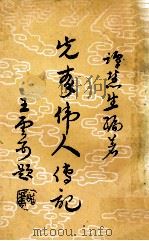 譚慧生編著
先秦偉人傳記
王雲五題